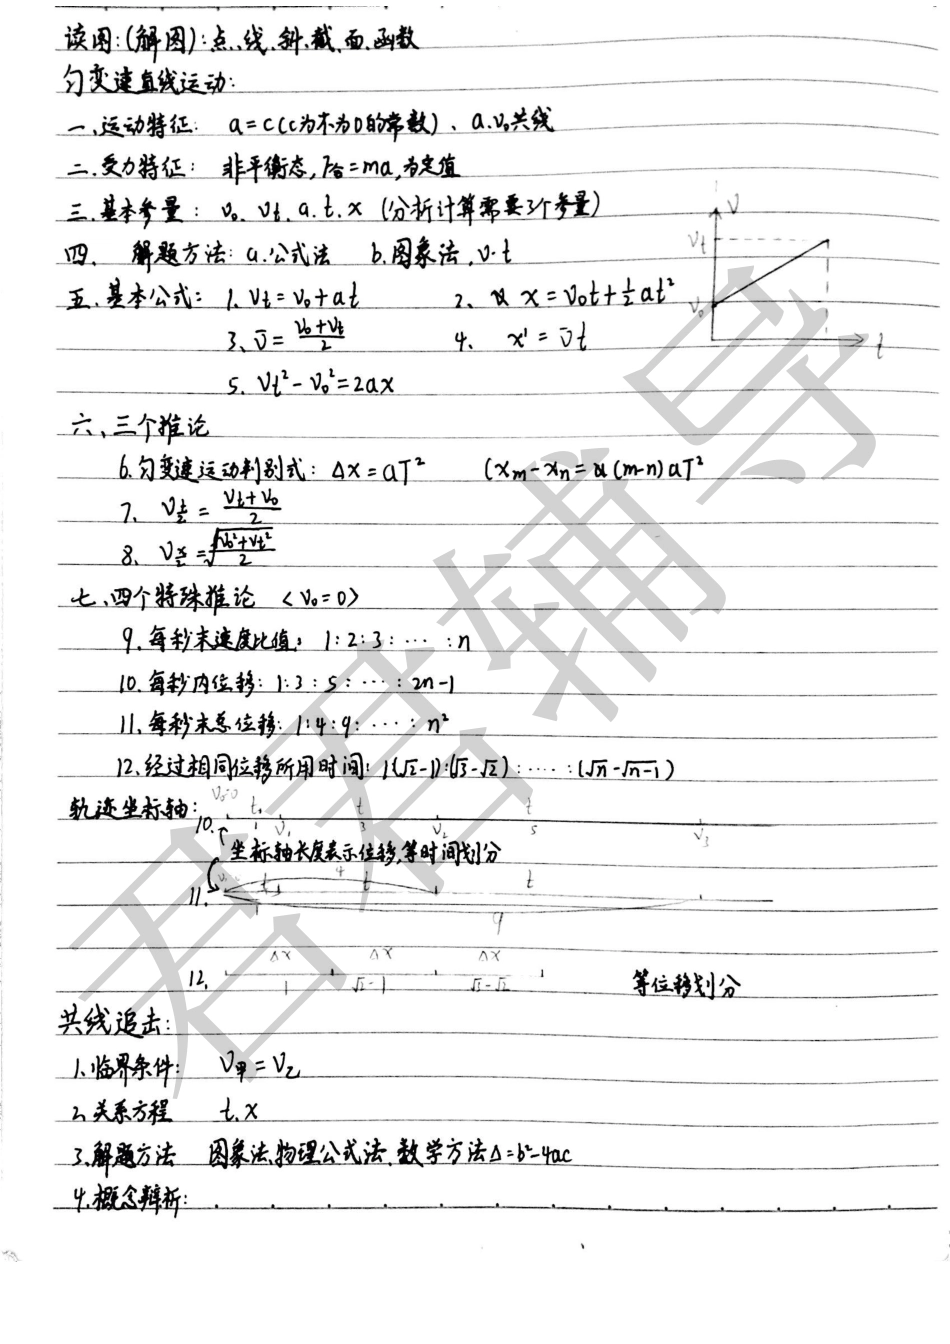 读图:(解图):点、线、斜、截、面、函数
匀变速直线运动:
一、运动特征: a=c(c为不为0的常数)、a.v₀共线
二.受力特征: 非平衡态,F合=ma,为定值
三.基本参量: v₀. vt. a. t. x (分析计算需要3个参量)
四. 解题方法: a.公式法 b.图象法,v-t
五.基本公式: 1. vt=v₀+at 2. x=v₀t+½at²
3、v̄=(v₀+vt)/2 4. x'=v̄t
5. vt²-v₀²=2ax
V
vt
v₀
t
六、三个推论
6.匀变速运动判别式: Δx=aT² (xm-xn=(m-n)aT²
7. v t/2 = (vt+v₀)/2
8. v x/2 = √((v₀²+vt²)/2)
七、四个特殊推论 <v₀=0>
9.每秒末速度比值: 1:2:3:…:n
10.每秒内位移: 1:3:5:…:2n-1
11.每秒末总位移: 1:4:9:…:n²
12.经过相同位移所用时间: 1:(√2-1):(√3-√2):…:(√n-√n-1)
轨迹坐标轴:
v₀=0 t t t
10. 1 v₁ 3 v₂ 5 v₃
坐标轴长度表示位移,等时间划分
4
11. t t t
1 9
Δx Δx Δx
12. 1 √2-1 √3-√2 等位移划分
共线追击:
1.临界条件: v甲=v乙
2.关系方程 t.x
3.解题方法 图象法.物理公式法.数学方法Δ=b²-4ac
4.概念辩析:
君君辅导